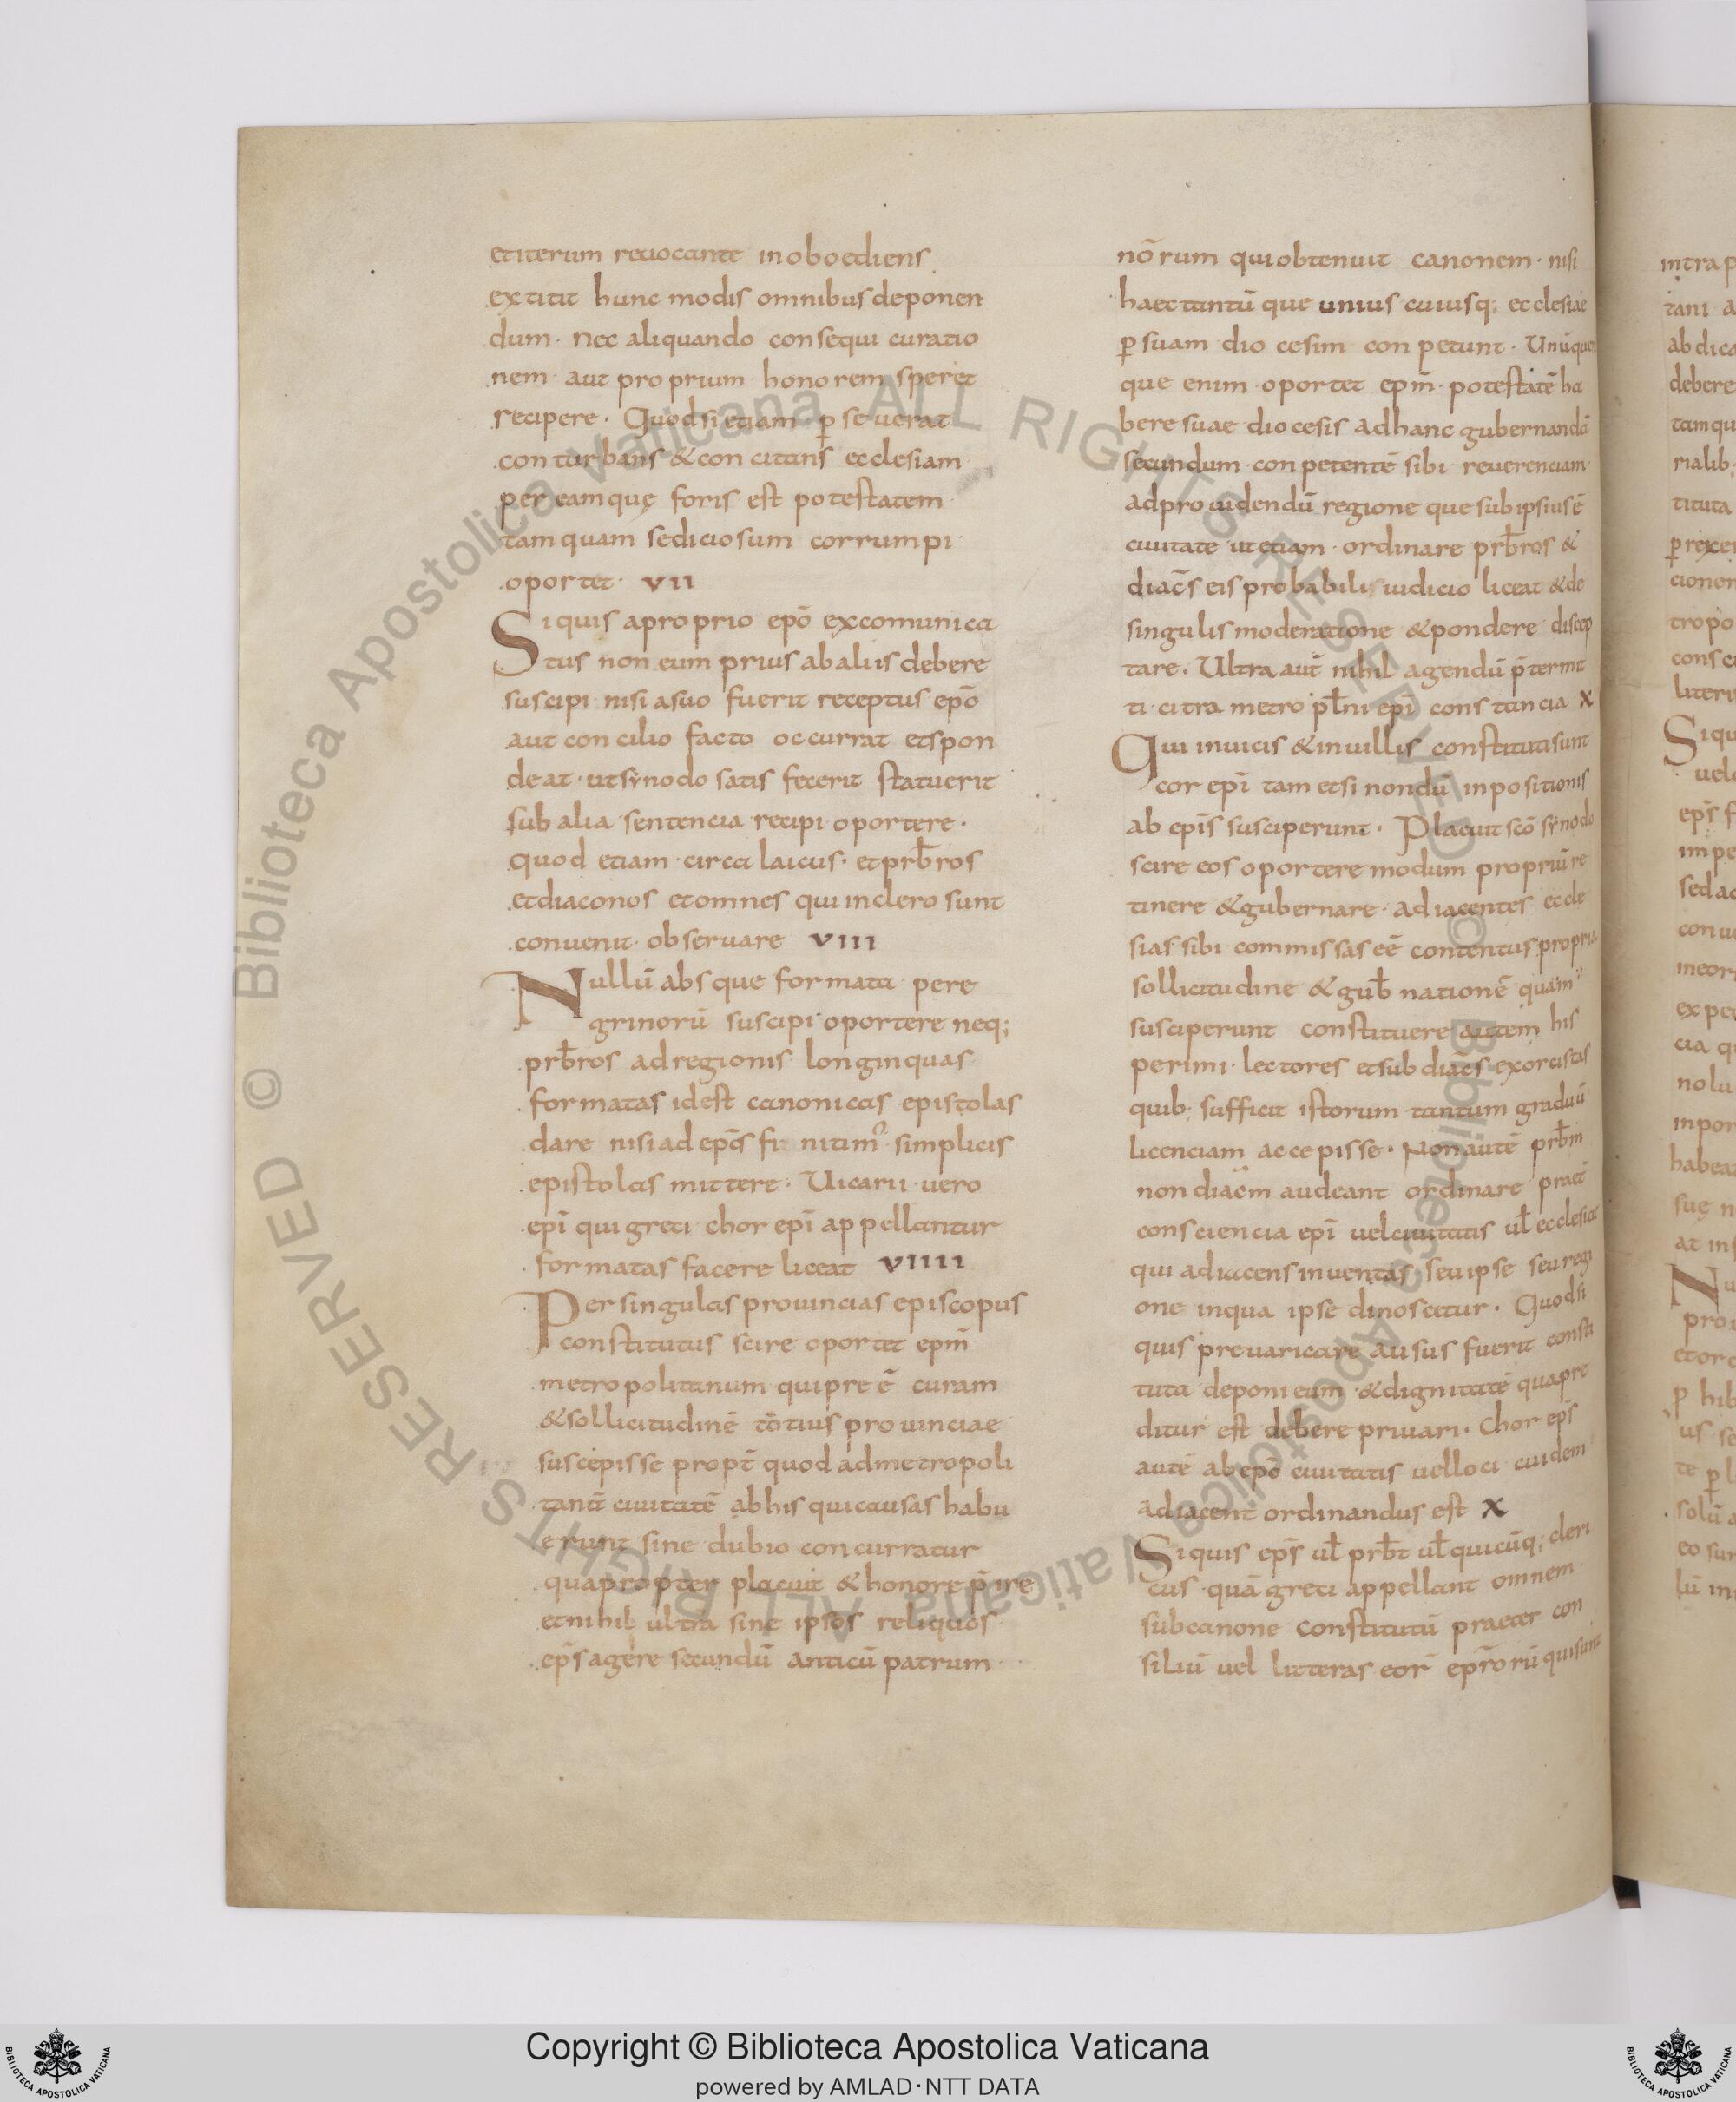 et iterum reuocante inoboediens
extitit hunc modis omnibus deponen
dum. Nec aliquando consequi curatio
nem aut proprium honorem speret
recipere. Quod si etiam p̱ seuerat
conturbans & concitans ecclesiam
per eam quę foris est potestatem
tamquam sediciosum corrumpi
oportet. VII
Si quis a proprio ep̄o excomunica
tus non eum prius ab aliis debere
suscipi nisi a suo fuerit receptus ep̄o
aut concilio facto occurrat et spon
deat. ut synodo satis fecerit statuerit
sub alia sentencia recipi oportere.
quod etiam circa laicus. et prb̄ros
et diaconos et omnes qui in clero sunt
conuenit obseruare VIII
Nullū absque formata pere
grinorū suscipi oportere neq;
prb̄ros ad regionis longinquas
formatas id est canonicas epistolas
dare nisi ad ep̄os fi nitim simplicis
epistolas mittere. Uicarii uero
ep̄i qui greci chor ep̄i appellantur
formatas facere liceat VIIII
Per singulas prouincias episcopus
constitutus scire oportet ep̄m
metropolitanum qui pre ē curam
& sollicitudinē totius prouinciae
suscepisse propt̄ quod ad metropoli
tanā ciuitatē ab his qui causas habu
erunt sine dubio concurratur
quapropter placuit & honore p̄ire
et nihil ultra sine ipsos reliquos
ep̄s agere secundū anticū patrum
nōrum qui obtenuit canonem. nisi
haec tantū que unius cuiusq; ecclesiae
p̱ suam diocesim conpetunt. Unūquem
que enim oportet ep̄m potestatē ha
bere suae diocesis ad hanc gubernandā
secundum conpetentē sibi reuerenciam
ad prouidendū regione que sub ipsius ē
ciuitate ut etiam ordinare prb̄ros &
diac̄s eis probabilis iudicio liceat & de
singulis moderatione & pondere discep
tare. Ultra aut̄ nihil agendū p̄termit
ti citra metropl̄ni ep̄i constancia X
Qui in uicis & in uillis constituti sunt
cor ep̄i tam etsi nondū inpositionis
ab ep̄is susciperunt. Placuit sc̄o synodo
scire eos oportere modum propriū re
tinere & gubernare adiacentes eccle
sias sibi commissas eē contentus propria
sollicitudine & gub̄natione quam
susciperunt constituere autem his
perimi lectores et sub diac̄s exorcistas
quib; sufficit istorum tantum graduū
licenciam accepisse. Non autē prb̄m
non diac̄m audeant ordinare praet̄
consciencia ep̄i uel ciuitatis ul̄ ecclesiae
qui adiacens inuentas seu ipse seu regi
one in qua ipse dinoscitur. Quod si
quis preuaricare ausus fuerit consti
tuta deponi eum & dignitatē qua pre
ditur est debere priuari. Chor ep̄s
autē ab ep̄o ciuitatis uel loci cuidem
adiacent ordinandus est X
Si quis ep̄s ul̄ prb̄t ul̄ quicūq; cleri
cus quā greci appellant omnem
sub canone constitutū praeter con
siliū uel litteras eor̄ epr̄orū qui sunt
Copyright © Biblioteca Apostolica Vaticana
powered by AMLAD·NTT DATA